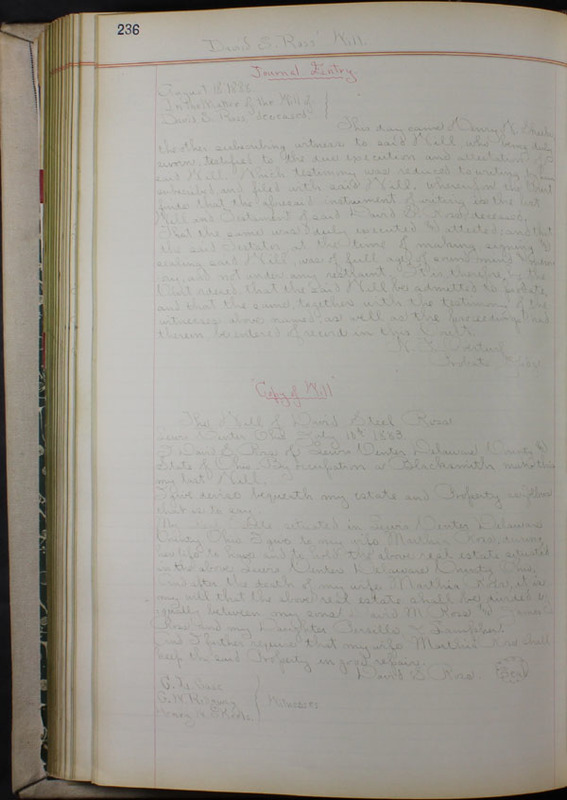 236
David S. Ross' Will.
Journal Entry.
August 1888
In the Matter of the Will of
David S. Ross deceased
This day came Henry
the other subscribing witness to said Will who being duly
sworn, testified to the due execution and attestation of
said Will. Which testimony was reduced to writing
subscribed and filed with said Will. Whereupon the Court
finds that the aforesaid instrument of writing is the last
Will and Testament of said David S. Ross deceased,
That the same was duly executed & attested; and that
the said Testator at the time of making signing &
sealing said Will, was of full age, of sound mind
and not under any restraint. It is therefore, by the
Court ordered, that the said Will be admitted to probate,
and that the same, together with the testimony of the
witnesses above named, as well as the proceedings had
therein be entered of record in this Court.
Probate Judge
"Copy of Will"
The Will of David Steel Ross
Lewis Center Ohio 18th 1883.
I David S. Ross of Lewis Center Delaware County &
State of Ohio By occupation a Blacksmith make this
my last Will.
I give devise bequeath my estate and Property as follows
that is to say
My situated in Lewis Center Delaware
County Ohio I give to my wife Martha Ross, during
her life to have and to hold the above real estate situated
in the above Lewis Center Delaware County Ohio,
and after the death of my wife Martha Ross, it is
my will that the above real estate shall be divided
equally between my sons M. Ross &
Ross and my Daughter
and I further require that my wife Martha Ross shall
keep the said Property in good repair.
David S. Ross Seal
G. W. Ridgway
Witnesses
Henry